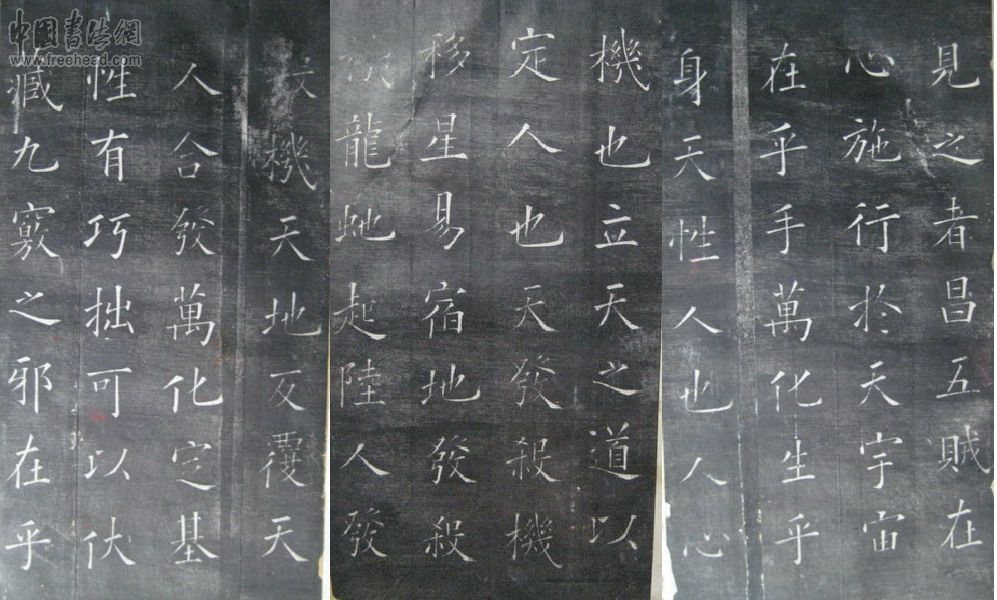 見之者昌五賊在
心施行於天宇宙
在乎手萬化生乎
身天性人也人心
機也立天之道以
定人也天發殺機
移星易宿地發殺
機龍虵起陸人發
殺機天地反覆天
人合發萬化定基
性有巧拙可以伏
臧九竅之邪在乎
中國書法網
www.freehead.com